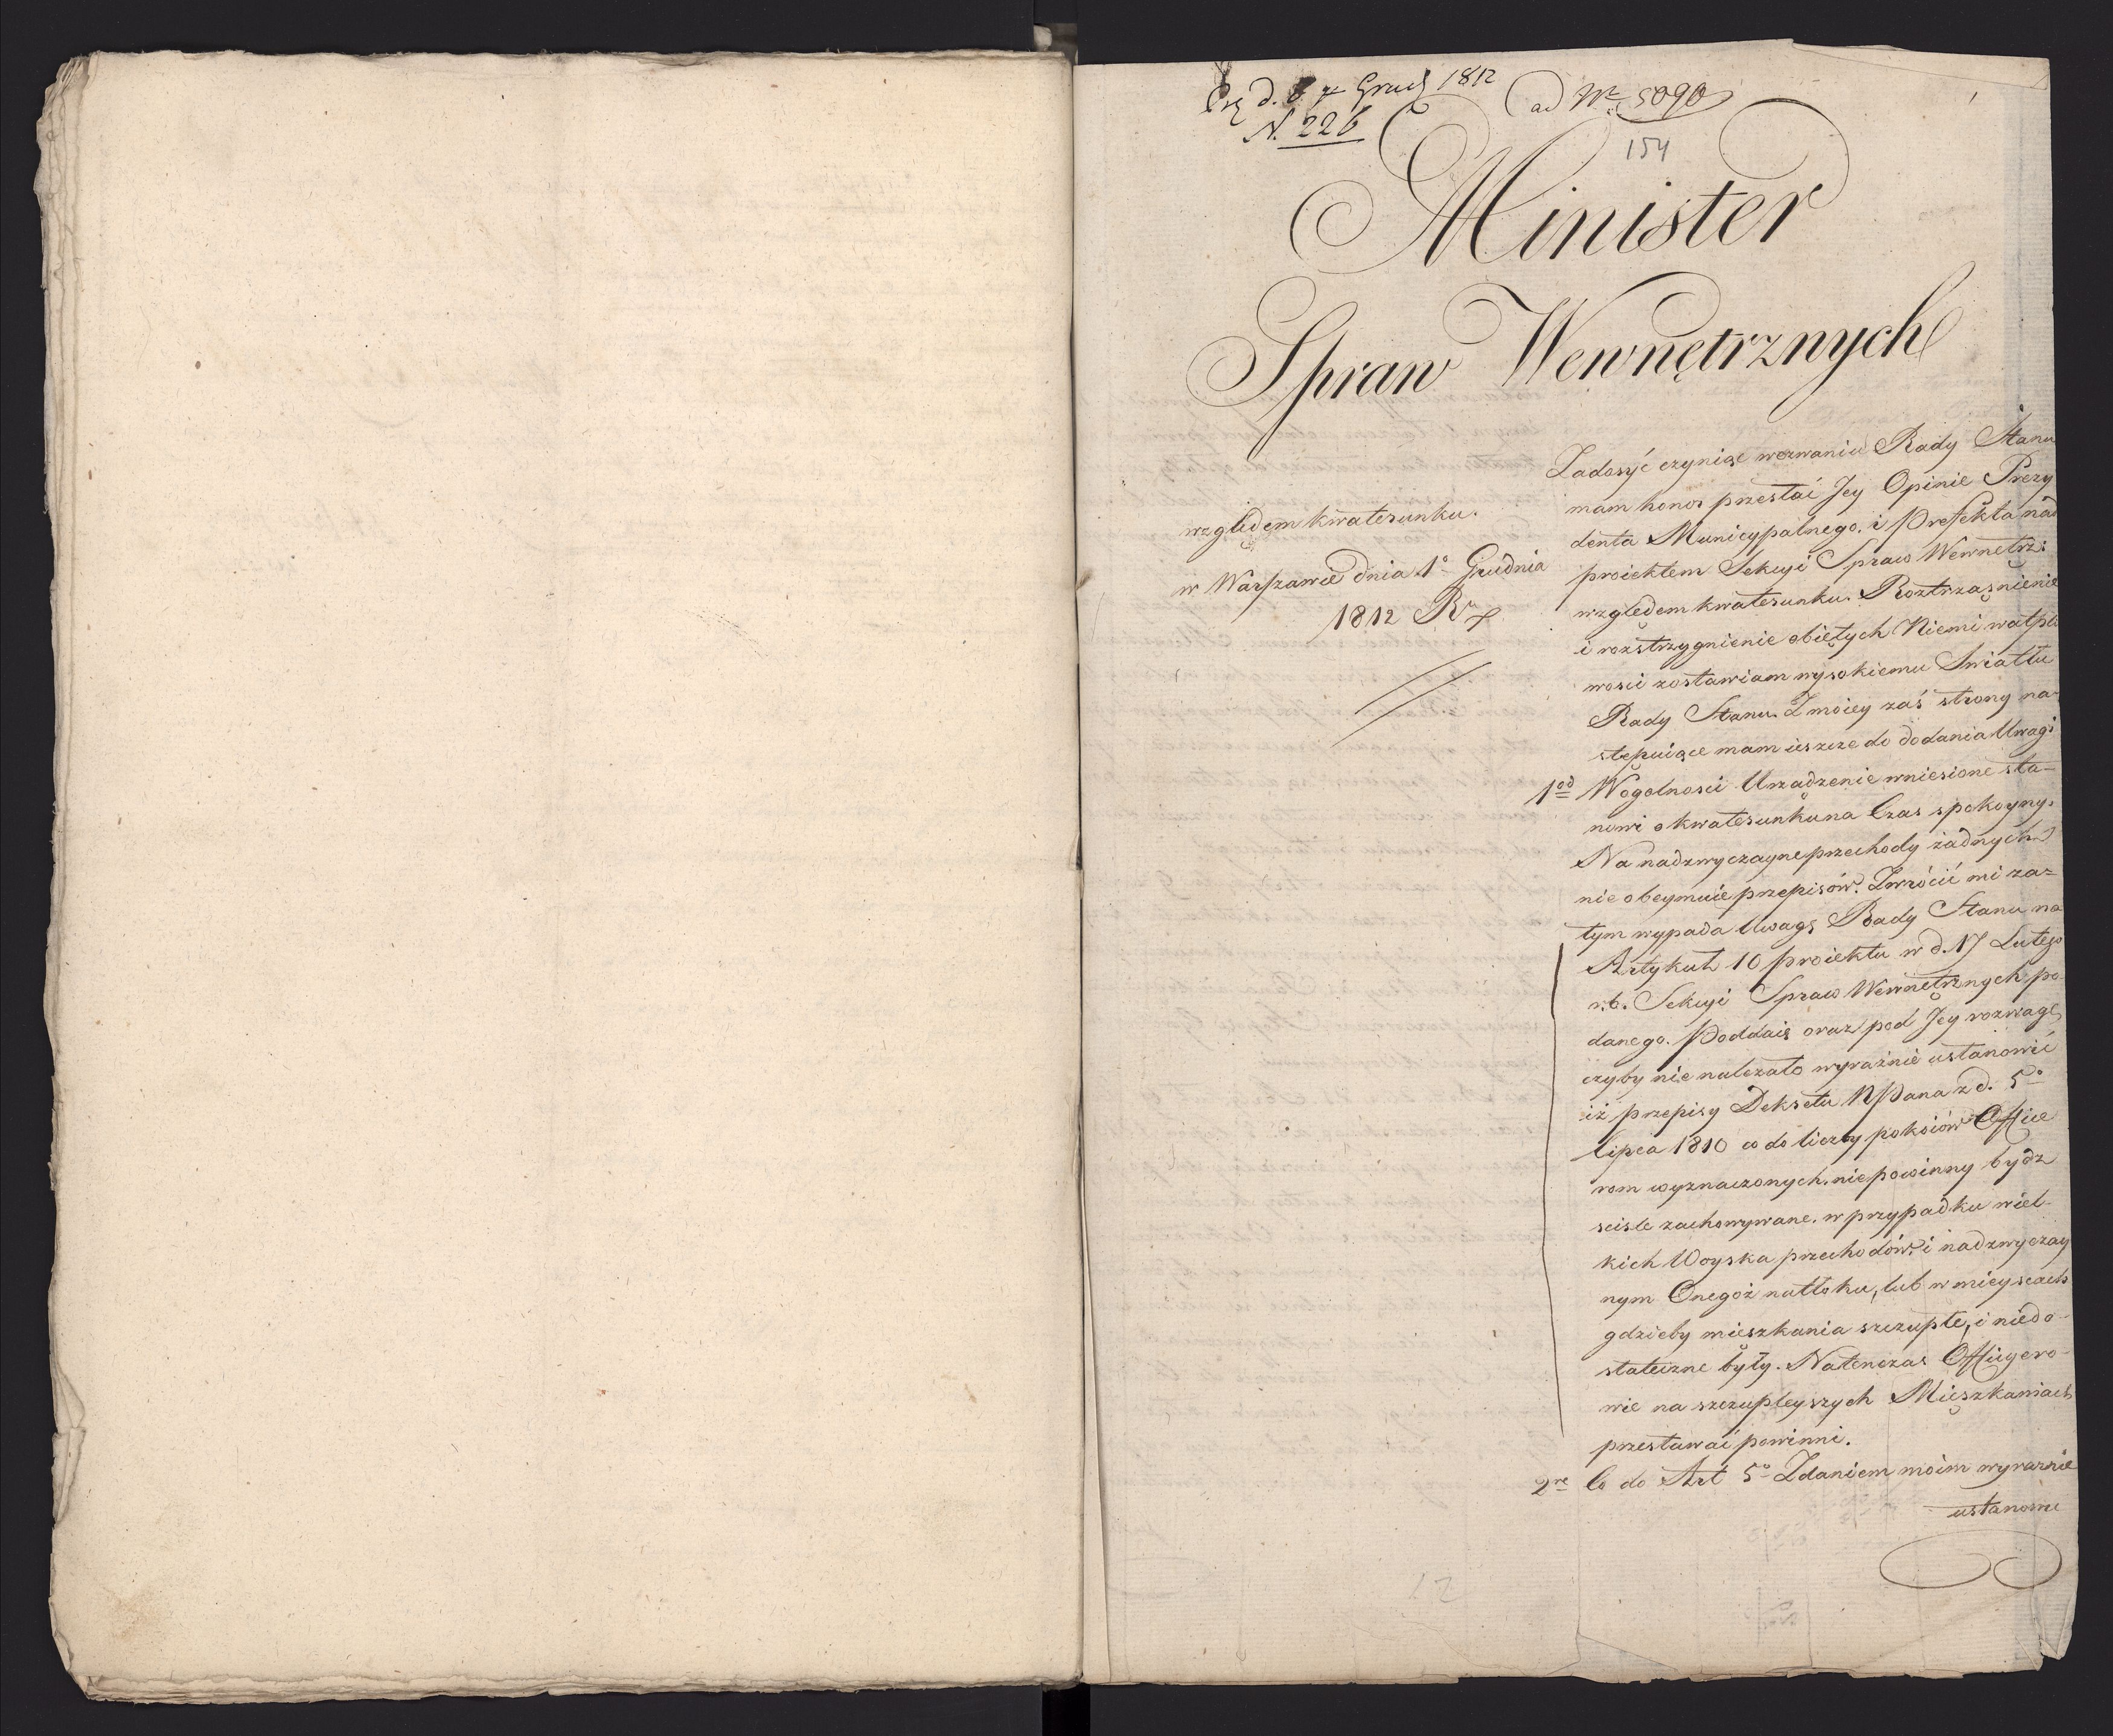 Prz d. 6 Grud 1812
N. 226
ad Nr 5090
154
Minister
Spraw Wewnętrznych
względem kwaterunku.
w Warszawie dnia 1o Grudnia
1812 Ru
Zadosyć czyniąc wezwaniu Rady Stanu
mam honor przesłać Jey Opinie Prezy
denta Municypalnego. i Prefekta nad
proiektem Sekcyi Spraw Wewnętrz:
względem kwaterunku. Roztrząśnienie
i rozstrzygnienie obiętych Niemi wątpli
wości zostawiam wysokiemu Swiatłu
Rady Stanu. Z moiey zaś strony na-
stępuiące mam ieszcze do dodania Uwagi
1od Wogolnosci Urządzenie wniesione sta-
nowi o kwaterunku na Czas spokoyny.
Na nadzwyczayne przechody żadnych
nie obeymuie przepisów. Zwrócić mi za-
tym wypada Uwagę Rady Stanu na
Artykuł 10 proiektu w d. 17 Lutego
r.b. Sekcyi Spraw Wewnętrznych po-
danego. Poddaię oraz pod Jey rozwagę,
czyby nie należało wyraźnie ustanowić
iż przepisy Dekretu NPana z d. 5o
lipca 1810 co do liczby pokoiów Office
rom wyznaczonych, nie powinny bydz
scisle zachowywane. w przypadku wiel-
kich Woyska przechodów, i nadzwyczay
nym Onegoż natłoku, lub w mieyscach
gdzieby mieszkania szczupłe, i niedo-
stateczne były. Natenczas Officyero-
wie na szczupleyszych Mieszkaniach
przestawać powinni.
2re Co do Art 5o Zdaniem moim wyraznie
ustanowić